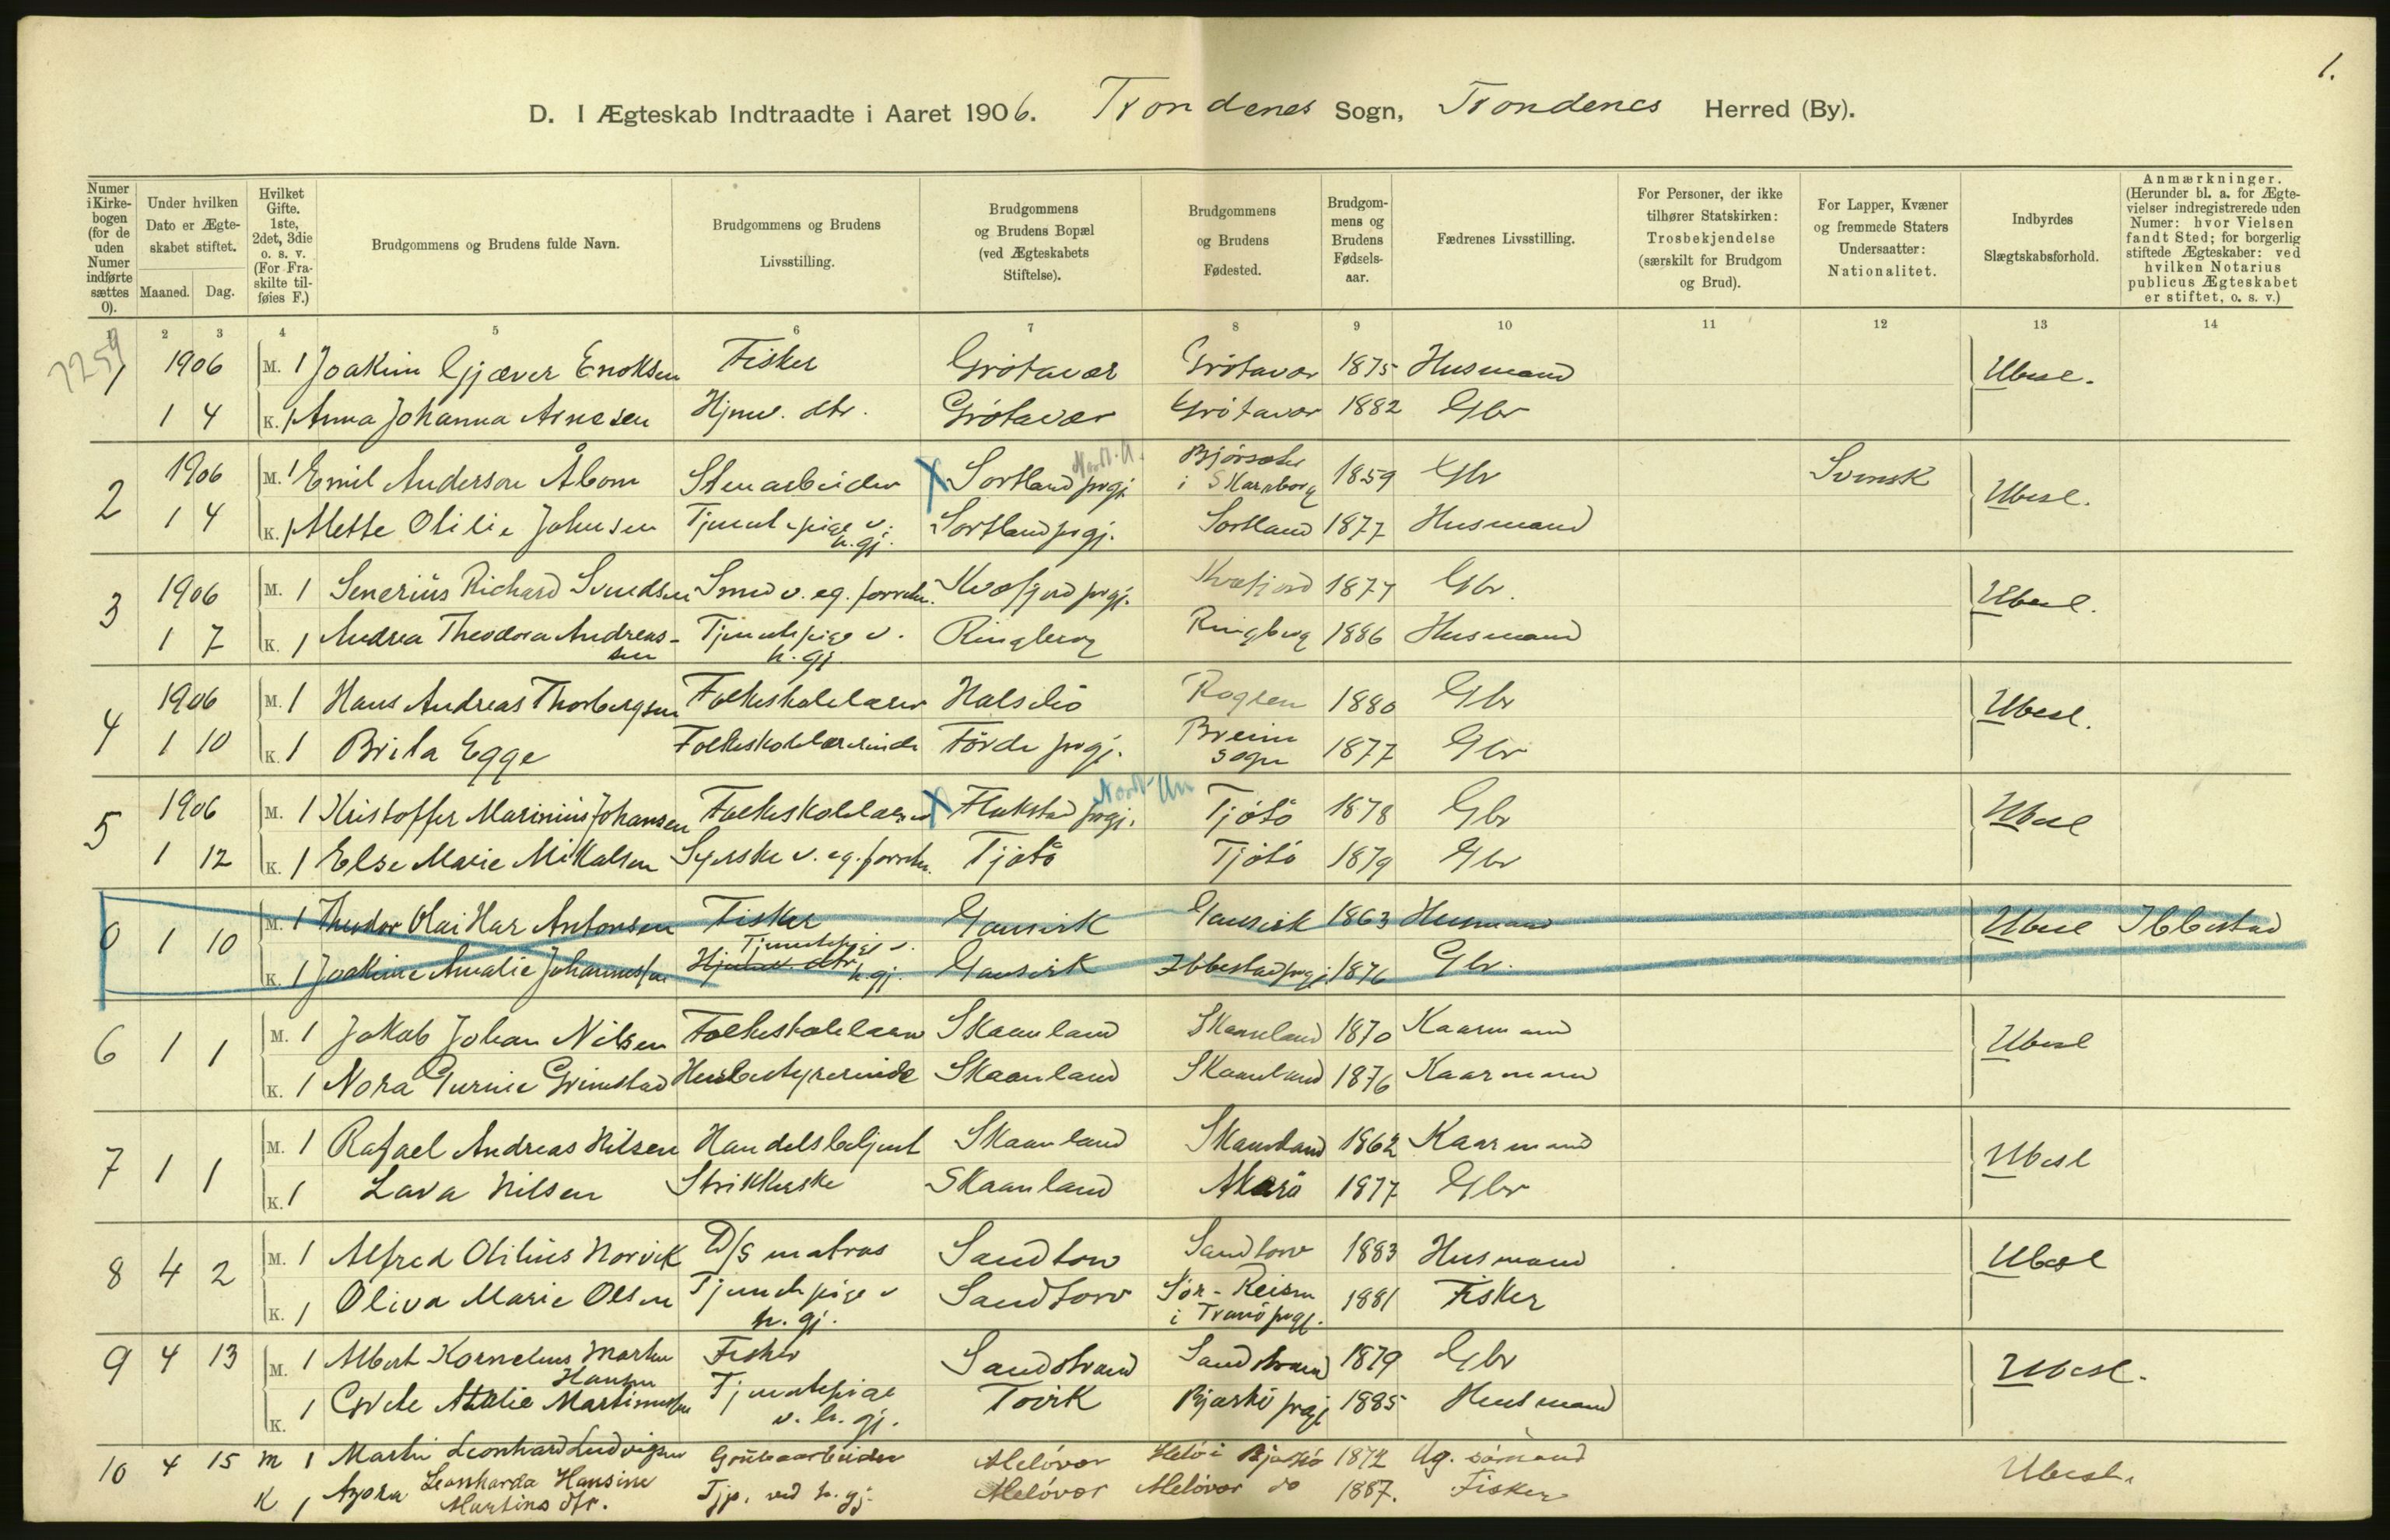 1.
D. I Ægteskab Indtraadte i Aaret 1906. Trondenes Sogn, Trondenes Herred (By).
Numer i Kirkebogen (for de uden Numer indførte sættes 0).
Under hvilken Dato er Ægteskabet stiftet.
Maaned. Dag.
Hvilket Gifte. 1ste, 2det, 3die o. s. v. (For Fraskilte tilføies F.)
Brudgommens og Brudens fulde Navn.
Brudgommens og Brudens Livsstilling.
Brudgommens og Brudens Bopæl (ved Ægteskabets Stiftelse).
Brudgommens og Brudens Fødested.
Brudgommens og Brudens Fødselsaar.
Fædrenes Livsstilling.
For Personer, der ikke tilhører Statskirken: Trosbekjendelse (særskilt for Brudgom og Brud).
For Lapper, Kvæner og fremmede Staters Undersaatter: Nationalitet.
Indbyrdes Slægtskabsforhold.
Anmærkninger. (Herunder bl. a. for Ægtevielser indregistrerede uden Numer: hvor Vielsen fandt Sted; for borgerlig stiftede Ægteskaber: ved hvilken Notarius publicus Ægteskabet er stiftet, o. s. v.)
1 2 3 4 5 6 7 8 9 10 11 12 13 14
7259
1 1906 M. 1 Joakim Gjæver Enoksen Fisker Grötavær Grötavær 1875 Husmand Ubesl.
1 4 K. 1 Anna Johanna Arnesen Hjmv. dtr. Grötavær Grötavær 1882 Gbr
2 1906 M. 1 Emil Anderson Åbom Stenarbeider X Sortland prgj. Nordl. A. i Skaraborg 1859 Gbr Svensk Ubesl.
1 4 K. 1 Mette Otilie Johnsen Tjenestepige v. h. gj. Sortland prgj. Sortland 1877 Husmand
3 1906 M. 1 Senerius Richard Svendsen Smed v. eg. forretn. Kvæfjord prgj. Kvæfjord 1877 Gbr. Ubesl.
1 7 K. 1 Andrea Theodora Andreassen Tjenestepige v. h. gj. Ringberg Ringberg 1886 Husmand
4 1906 M. 1 Hans Andreas Thorbergsen Folkeskolelærer Halsebö Rogsen 1880 Gbr Ubesl.
1 10 K. 1 Brita Egge Folkeskolelærerinde Förde prgj. Breim sogn 1877 Gbr
5 1906 M. 1 Kristoffer Marinius Johansen Folkeskolelærer X Flakstad prgj. Nordl. Am Tjötö 1878 Gbr Ubesl
1 12 K. 1 Else Marie Mikalsen Syerske v. eg. forretn. Tjötö Tjötö 1879 Gbr
0 1 10 M. 1 Theodor Olai Har Antonsen Fisker Gausvik Gausvik 1863 Husmand Ubesl Ibbestad
K. 1 Joakime Amalie Johannessen Hjemmev. dtr. Tjenestepige v. h. gj. Gausvik Ibbestad prgj. 1876 Gbr.
6 1 1 M. 1 Jakob Johan Nilsen Folkeskolelærer Skaanland Skaanland 1870 Kaarmand Ubesl
K. 1 Nora Gurine Grimstad Husbestyrerinde Skaanland Skaanland 1876 Kaarmand
7 1 1 M. 1 Rafael Andreas Nilsen Handelsbetjent Skaanland Skaanland 1862 Kaarmand Ubesl
K. 1 Lava Nilsen Strikkerske Skaanland 1877 Gbr
8 4 2 M. 1 Alfred Otilius Norvik D/S matros Sandtorv Sandtorv 1883 Husmand Ubesl
K. 1 Oliva Marie Olsen Tjenestepige v. h. gj. Sandtorv Sör-Reisen i Tranö prgj. 1881 Fisker
9 4 13 M. 1 Albert Kornelius Martin Hansen Fisker Sandstrand Sandstrand 1879 Gbr Ubesl.
K. 1 Grete Atalie Martinussen Tjenestepige v. h. gj. Tovik Bjarkö prgj 1885 Husmand
10 4 15 M 1 Martin Leonhard Ludvigsen Grubearbeider Melövær Helö i Bjarkö 1872 Ug. sömand Ubesl.
K 1 Azora Leonharda Hansine Martins dtr. Tjp. ved h. gj. Melövær Melövær do 1887. Fisker